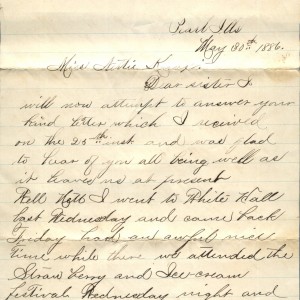 Pearl Ills
May 30th 1886.
Miss Artie
Dear sister I
will now attempt to answer your
kind letter which I received
on the 25th inst and was glad
to hear of you all being well as
it leaves us at present
Well I went to White Hall
last Wednesday and came back
Friday had an awful nice
time while there we attended the
Strawberry and Icecream
festival Wednesday night and